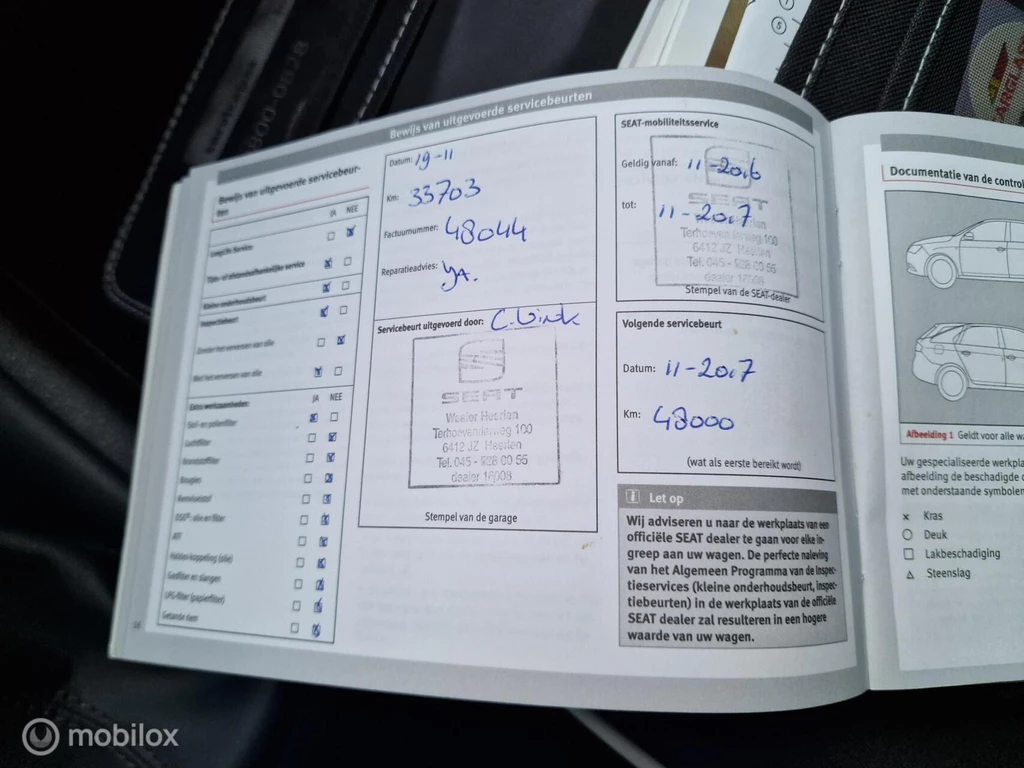 Bewijs van uitgevoerde servicebeurten
Bewijs van uitgevoerde servicebeur-
ten
JA NEE
LongLife Service:
Tijds- of afstandsafhankelijke service
Kleine onderhoudsbeurt
Inspectiebeurt
Zonder het verversen van olie
Met het verversen van olie
Extra werkzaamheden: JA NEE
Stof- en pollenfilter
Luchtfilter
Brandstoffilter
Bougies
Remvloeistof
DSG®: olie en filter
ATF
Haldex-koppeling (olie)
Gasfilter en slangen
LPG-filter (papierfilter)
Getande riem
16
Datum: 19-11
Km: 33703
Factuurnummer: 48044
Reparatieadvies: JA.
Servicebeurt uitgevoerd door:
SEAT
Heerlen
Terhoevenderweg 100
6412 JZ Heerlen
Tel. 045 - 528 00 55
dealer 16008
Stempel van de garage
SEAT-mobiliteitsservice
Geldig vanaf: 11-2016
tot: 11-2017
SEAT
Terhoevenderweg 100
6412 JZ Heerlen
Tel. 045 - 528 00 55
dealer 16008
Stempel van de SEAT-dealer
Volgende servicebeurt
Datum: 11-2017
Km: 48000
(wat als eerste bereikt wordt)
i Let op
Wij adviseren u naar de werkplaats van een
officiële SEAT dealer te gaan voor elke in-
greep aan uw wagen. De perfecte naleving
van het Algemeen Programma van de Inspec-
tieservices (kleine onderhoudsbeurt, inspec-
tiebeurten) in de werkplaats van de officiële
SEAT dealer zal resulteren in een hogere
waarde van uw wagen.
Documentatie van de control
Afbeelding 1 Geldt voor alle wa
Uw gespecialiseerde werkpla
afbeelding de beschadigde
met onderstaande symbolen
x Kras
○ Deuk
□ Lakbeschadiging
△ Steenslag
mobilox